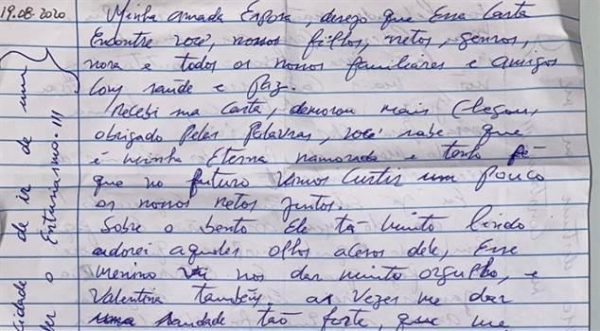 19.08.2020
Minha amada Esposa desejo que Essa Carta
Encontre você, nossos filhos, netos, genros,
nora e todos os nossos familiares e amigos
Com saúde e Paz.
Recebi sua Carta, demorou mais Chegou,
obrigado Pelas Palavras, você sabe que
é minha Eterna namorada e tenho fé
que no futuro vamos Curtir um pouco
os nossos netos juntos.
Sobre o bento Ele tá muito lindo
adorei aqueles olhos acesos dele, Esse
menino vai nos dar muito orgulho, e
Valentina também, as vezes me dar
uma saudade tão forte, que me
cidade de ir de um
der o Entusiasmo.!!!